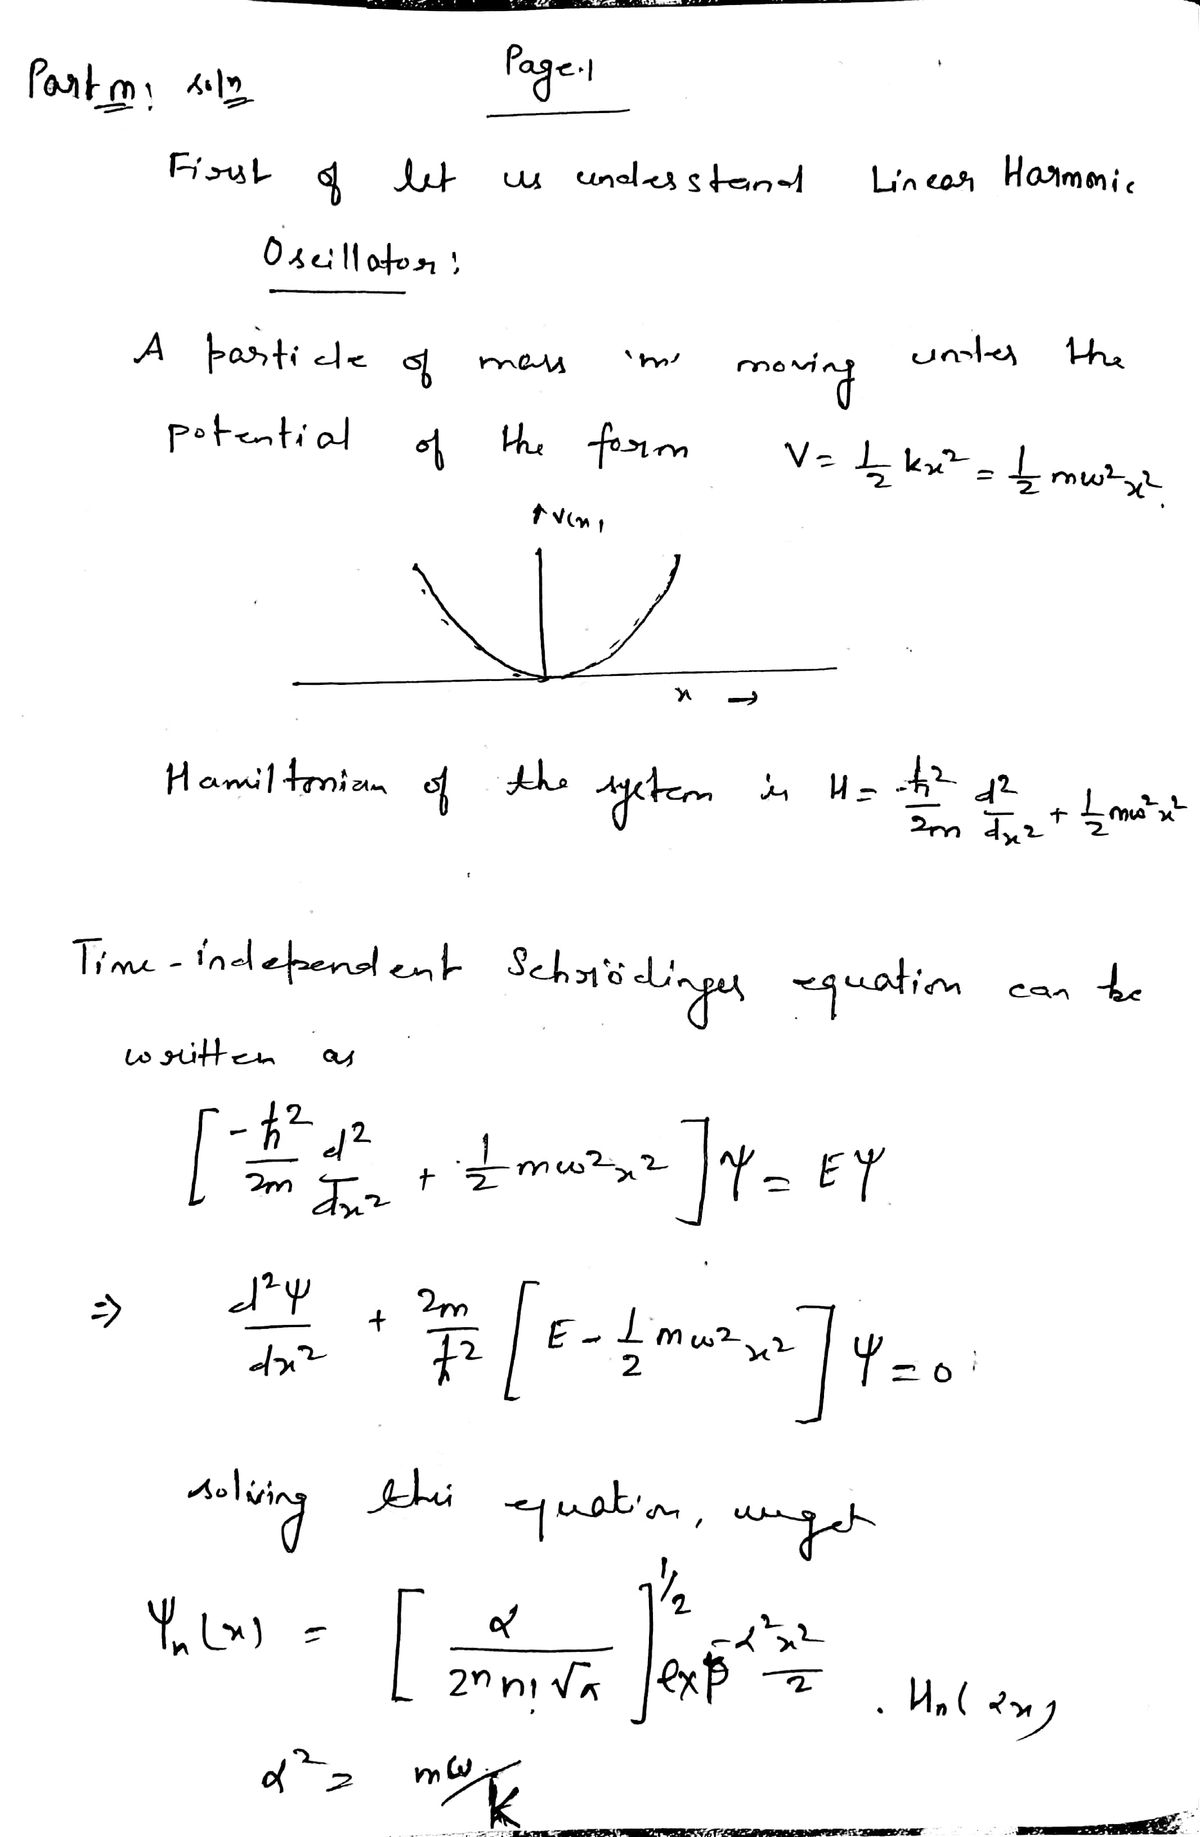 Page.1
Part m: soln
First of let us understand Linear Harmonic
Oscillator:
A particle of mass 'm' moving under the
potential of the form V = 1/2 kx² = 1/2 mω²x².
↑V(x)
x →
Hamiltonian of the system is H = -ħ²/2m d²/dx² + 1/2 mω²x²
Time-independent Schrödinger equation can be
written as
[-ħ²/2m d²/dx² + 1/2 mω²x²]ψ = Eψ
⇒ d²ψ/dx² + 2m/ħ² [E - 1/2 mω²x²]ψ = 0
solving this equation, we get
ψn(x) = [α/2ⁿ n! √π]^1/2 exp^-α²x²/2 . Hn(αx)
α² = mω/K